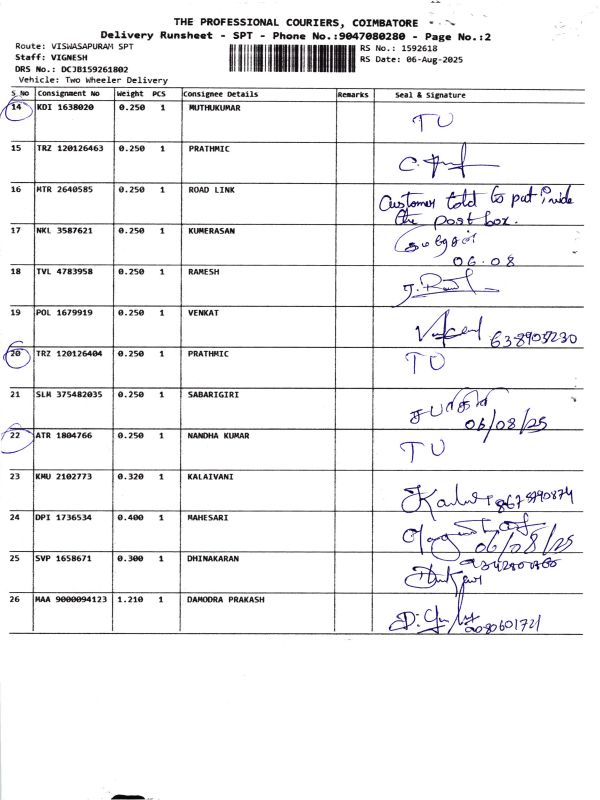 THE PROFESSIONAL COURIERS, COIMBATORE
Delivery Runsheet - SPT - Phone No.:9047080280 - Page No.:2
Route: VISWASAPURAM SPT
Staff: VIGNESH
DRS No.: DCJB159261802
Vehicle: Two Wheeler Delivery
RS No.: 1592618
RS Date: 06-Aug-2025
S_No Consignment No Weight PCS Consignee Details Remarks Seal & Signature
14 KDI 1638020 0.250 1 MUTHUKUMAR TU
15 TRZ 120126463 0.250 1 PRATHMIC
16 MTR 2640585 0.250 1 ROAD LINK Customer told to put inide
the post box.
17 NKL 3587621 0.250 1 KUMERASAN
06.08
18 TVL 4783958 0.250 1 RAMESH
19 POL 1679919 0.250 1 VENKAT
20 TRZ 120126404 0.250 1 PRATHMIC TU
21 SLM 375482035 0.250 1 SABARIGIRI
06/08/25
22 ATR 1804766 0.250 1 NANDHA KUMAR TU
23 KMU 2102773 0.320 1 KALAIVANI
24 DPI 1736534 0.400 1 MAHESARI
06/08/25
25 SVP 1658671 0.300 1 DHINAKARAN
26 MAA 9000094123 1.210 1 DAMODRA PRAKASH